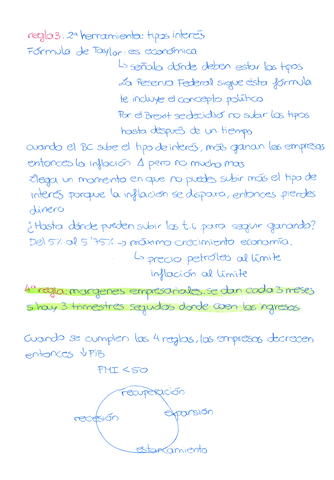 regla 3: 2ª herramienta: tipos interés
Fórmula de Taylor: es económica
↳ señala dónde deben estar los tipos
La Reserva Federal sigue esta fórmula
te incluye el concepto político
Por el Brexit se decidió no subir los tipos
hasta después de un tiempo
cuando el BC sube el tipo de interés, más ganan las empresas
entonces la inflación Δ pero no mucho mas
llega un momento en que no puedes subir más el tipo de
interés porque la inflación se dispara, entonces pierdes
dinero
¿Hasta dónde pueden subir los t.i para seguir ganando?
Del 5% al 5'75% → máximo crecimiento economía.
↳ precio petróleo al límite
inflación al límite
4ª regla: margenes empresariales, se dan cada 3 meses
si hay 3 trimestres seguidos donde caen los ingresos
Cuando se cumplen las 4 reglas, las empresas decrecen
entonces ↓ PIB
PMI < 50
recuperación
recesión
expansión
estancamiento